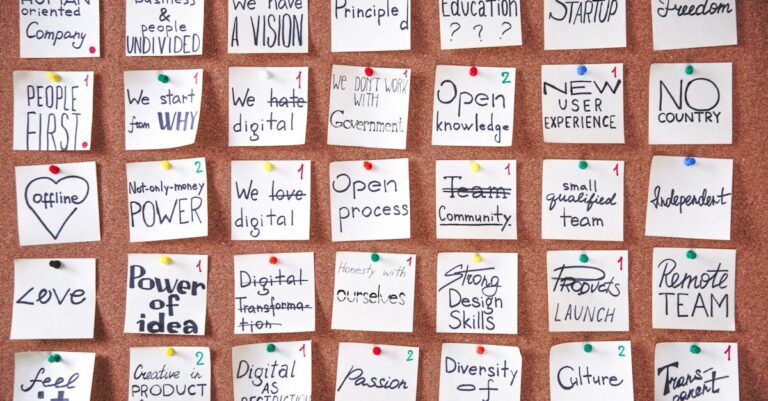 HUMAN
oriented
Company
Business
&
people
UNDIVIDED
We have
A VISION
Principle
d
Education
? ? ?
STARTUP
Freedom
1
PEOPLE
FIRST.
1
We start
from WHY
1
We hate
digital
1
We DON'T WORK
WITH
Government
2
Open
knowledge
1
NEW
USER
EXPERIENCE
NO
COUNTRY
offline
2
Not-only-money
POWER
1
We love
digital
Open
process
1
Team
Community
1
small
qualified
team
Independent
Love
1
Power
of
idea
1
Digital
Transforma-
tion
1
Honesty with
ourselves
Strong
Design
Skills
1
Products
LAUNCH
Remote
TEAM
feel
it
2
Creative in
PRODUCT
1
Digital
AS
RESTRICTION
2
Passion
Diversity
of
2
Culture
1
Trans-
parent